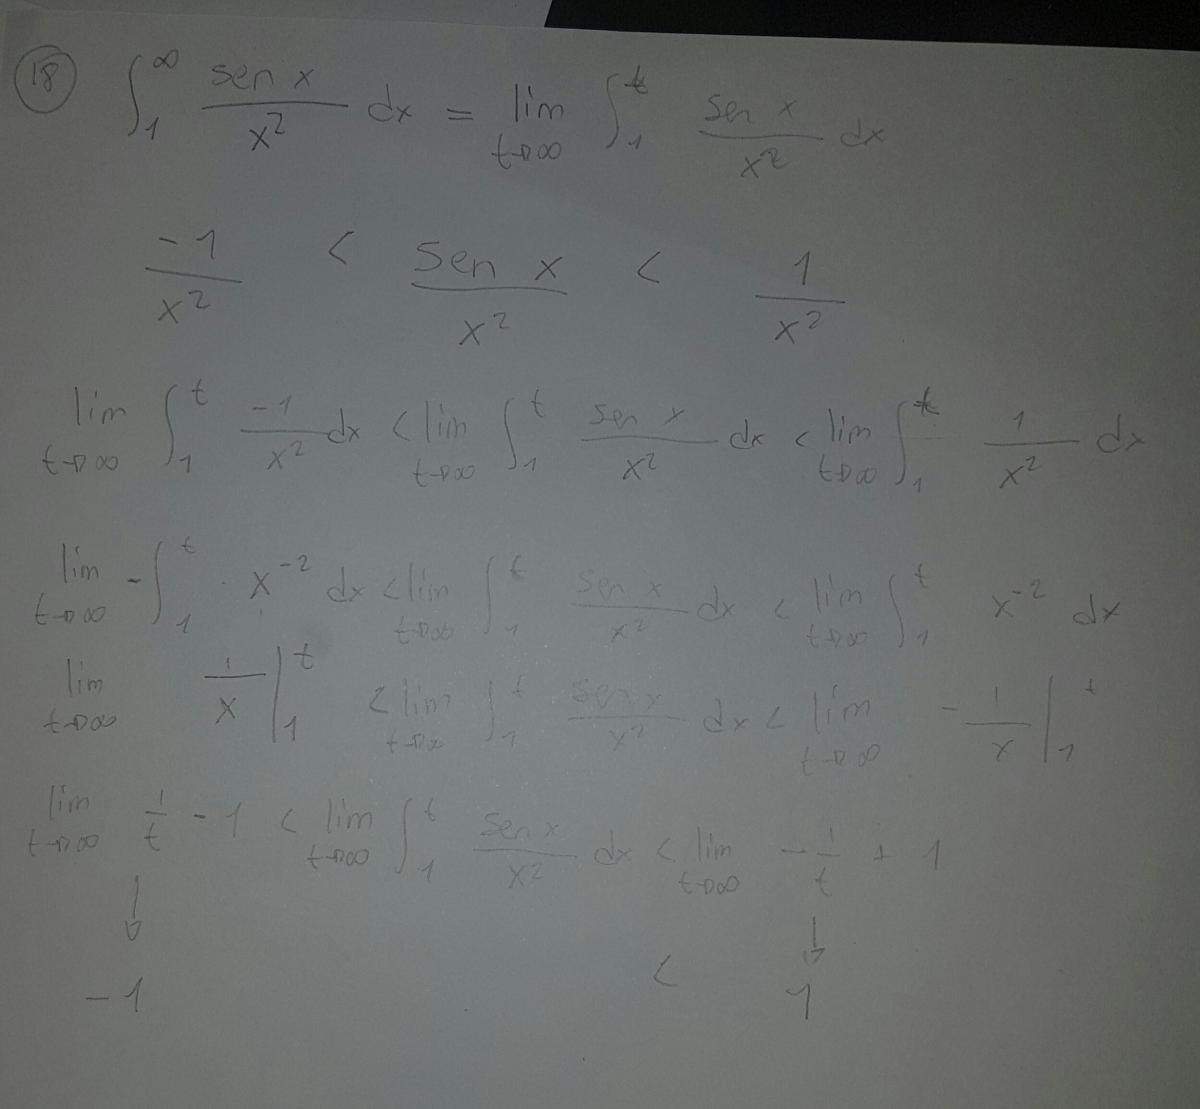 18 ∫₁^∞ sen x / x² dx = lim t→∞ ∫₁^t sen x / x² dx
-1 / x² < sen x / x² < 1 / x²
lim t→∞ ∫₁^t -1 / x² dx < lim t→∞ ∫₁^t sen x / x² dx < lim t→∞ ∫₁^t 1 / x² dx
lim t→∞ -∫₁^t x⁻² dx < lim t→∞ ∫₁^t sen x / x² dx < lim t→∞ ∫₁^t x⁻² dx
lim t→∞ 1 / x |₁^t < lim t→∞ ∫₁^t sen x / x² dx < lim t→∞ - 1 / x |₁^t
lim t→∞ 1 / t - 1 < lim t→∞ ∫₁^t sen x / x² dx < lim t→∞ - 1 / t + 1
↓ ↓
-1 < 1